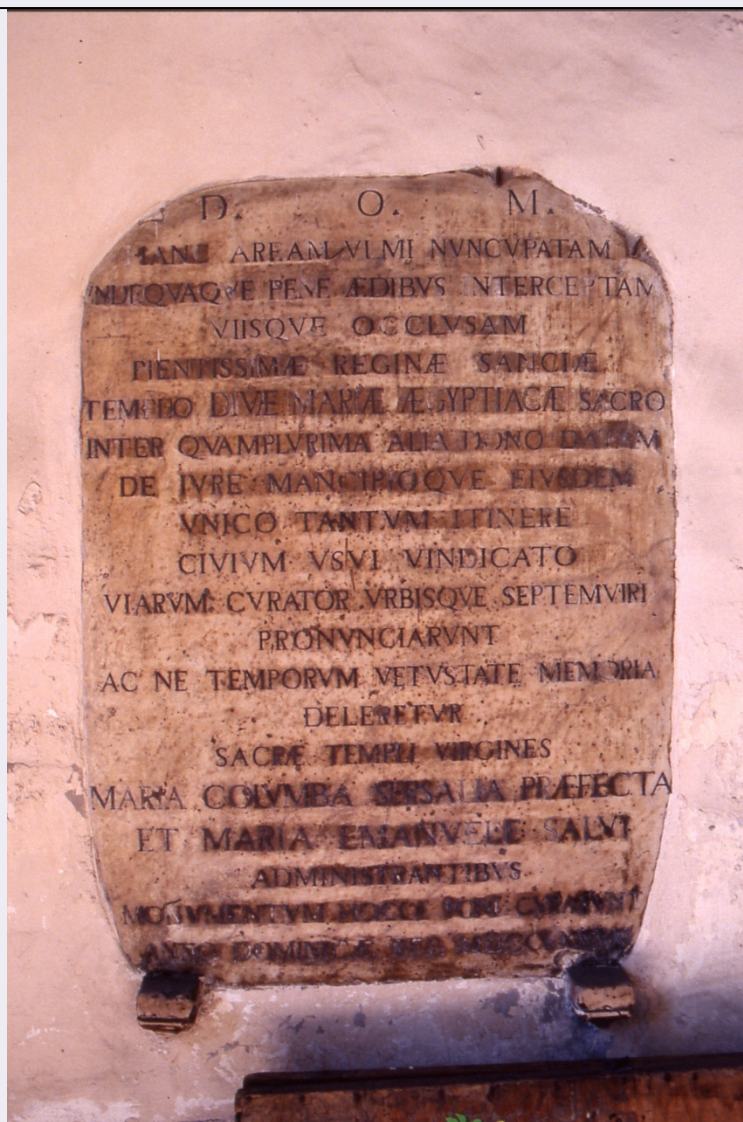 D. O. M.
HANC AREAM VLMI NVNCVPATAM
VNDEQVAQVE PENE ÆDIBVS INTERCEPTAM
VIISQVE OCCLVSAM
PIENTISSIMÆ REGINÆ SANCIÆ
TEMPLO DIVÆ MARIÆ ÆGYPTIACÆ SACRO
INTER QVAMPLVRIMA ALIA DONO DATAM
DE IVRE MANCIPIOQVE EIVSDEM
VNICO TANTVM ITINERE
CIVIVM VSVI VINDICATO
VIARVM CVRATOR VRBISQVE SEPTEMVIRI
PRONVNCIARVNT
AC NE TEMPORVM VETVSTATE MEMORIA
DELERETVR
SACRÆ TEMPLI VIRGINES
MARIA COLVMBA SERSALIA PRÆFECTA
ET MARIA EMANVELE SALVI
ADMINISTRANTIBVS
MONVMENTVM HOCCE PONI CVRARVNT
ANNO DOMINICÆ